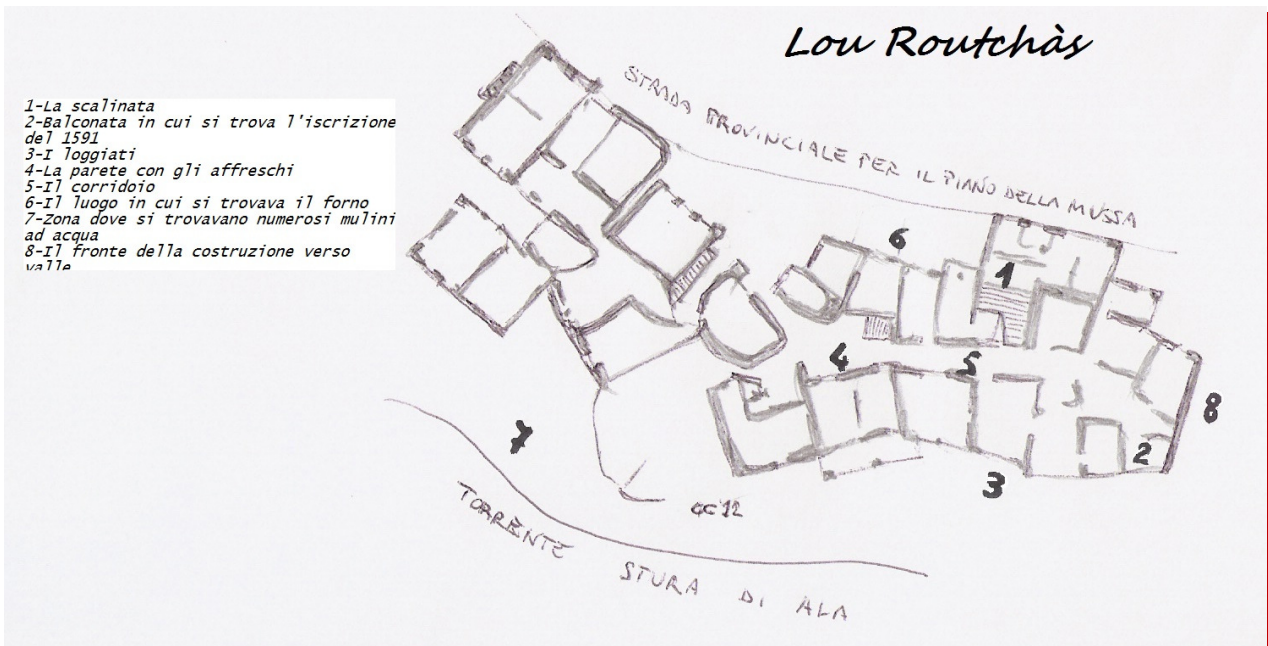 Lou Routchàs
1-La scalinata
2-Balconata in cui si trova l'iscrizione
del 1591
3-I loggiati
4-La parete con gli affreschi
5-Il corridoio
6-Il luogo in cui si trovava il forno
7-Zona dove si trovavano numerosi mulini
ad acqua
8-Il fronte della costruzione verso
valle
STRADA PROVINCIALE PER IL PIANO DELLA MUSSA
6
1
4
5
8
7
2
3
GC'12
TORRENTE STURA DI ALA